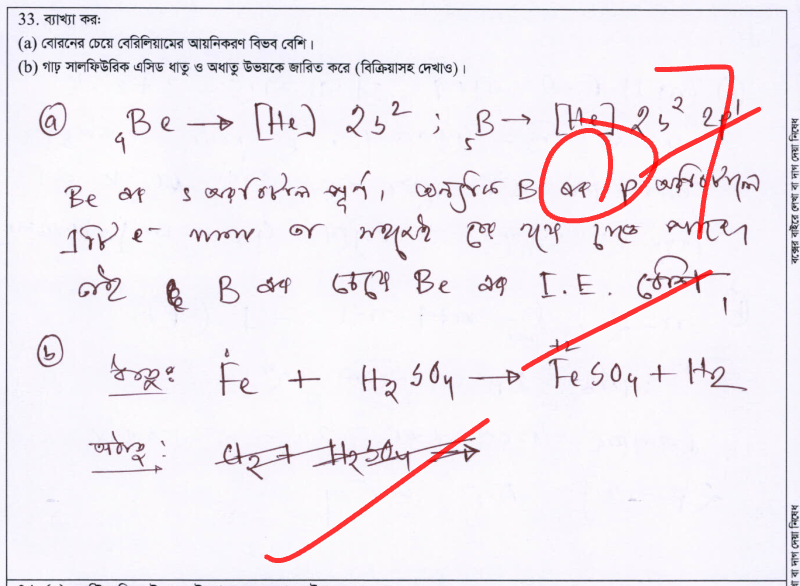 33. ব্যাখ্যা কর:
(a) বোরনের চেয়ে বেরিলিয়ামের আয়নিকরণ বিভব বেশি।
(b) গাঢ় সালফিউরিক এসিড ধাতু ও অধাতু উভয়কে জারিত করে (বিক্রিয়াসহ দেখাও)।
(a) ₄Be → [He] 2s² ; ₅B → [He] 2s² 2p¹
Be এর s অরবিটাল পূর্ণ, অন্যদিকে B এর p অরবিটালে
একটি e⁻ থাকায় তা সহজেই বের হয়ে যেতে পারে।
তাই B এর চেয়ে Be এর I.E. বেশি।
(b)
ধাতু: Fe + H₂SO₄ → Fe SO₄ + H₂
+2
অধাতু:
বক্সের বাইরে লেখা বা দাগ দেয়া নিষেধ
বা দাগ দেয়া নিষেধ